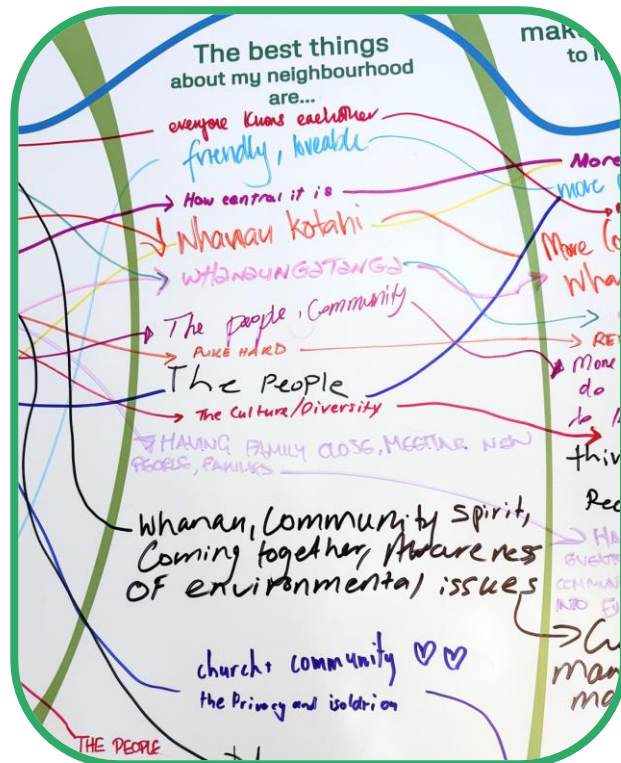 The best things
about my neighbourhood
are...
everyone knows eachother
friendly, loveable
How central it is
Whanau kotahi
WHANAUNGATANGA
The people, Community
PUKE HARD
The People
The Culture/Diversity
HAVING FAMILY CLOSE, MEETING NEW
PEOPLE, FAMILIES
Whanau, Community spirit,
Coming together, Awareness
OF environmental issues
church + community
the Privacy and isolation
THE PEOPLE
to
More
more
More
do
to
INTO